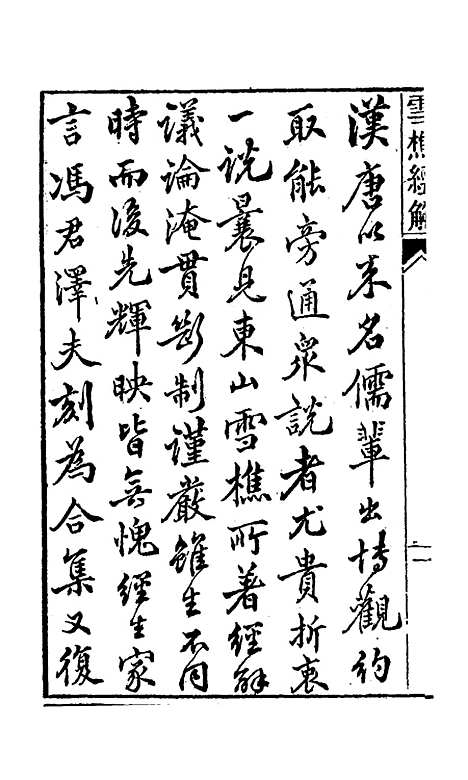 雪樵經解
漢唐以来名儒輩出博觀約
取能旁通衆說者尤貴折衷
一說曩見東山雪樵所著經解
議論淹貫斷制謹嚴雖生不同
時而後先輝映皆無愧經生家
言馮君澤夫刻為合集又復